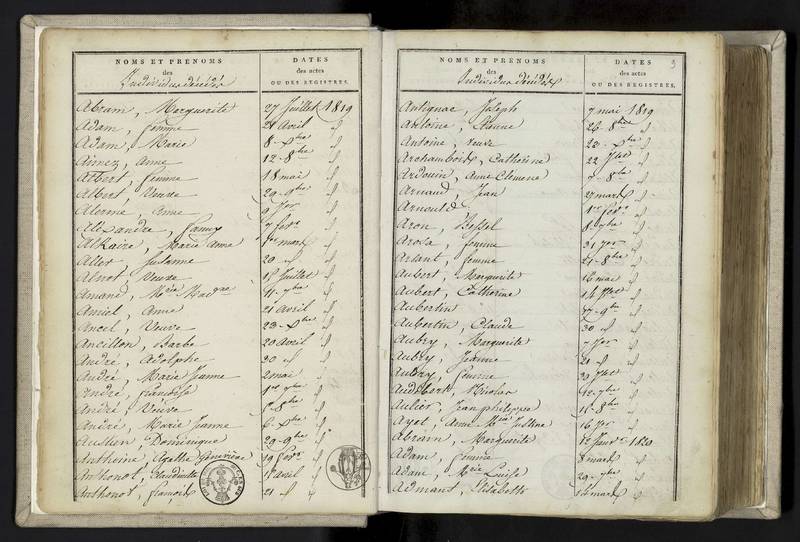 NOMS ET PRÉNOMS
des
Individus décédés
DATES
des actes
OU DES REGISTRES.
Abram, Marguerite 27 Juillet 1819
Adam, femme 28 avril
Adam, Marie 8 - Xbre
Aimez, anne 12 - 8bre
Albert, femme 18 mai
Albert, Veuve 29 - 9bre
Alerme, anne 9 Jer
Alexandre, fanny 7 fer
Alkaire, Marie anne 1er mars
Aller, Suzanne 20
Alnot, Veuve 15 Juillet
Amand, Mie Magne 11 - 7bre
Amiel, anne 21 avril
Ancel, Veuve 23 - Xbre
Ancillon, Barbe 20 avril
André, Adolphe 30
André, Marie Jeanne 2 mai
André, françoise 1er 7bre
André Veuve 8bre
André, Marie Jeanne 6 - Xbre
Austien Dominique 29 - 9bre
Antheine, Agathe Geneviève 19 fer
Anthonot, Claudinette 1er avril
Anthonot, 21
NOMS ET PRENOMS
des
Individus décédés
DATES
des actes
OU DES REGISTRES.
3
Antignac, Joseph 7 mai 1819
Antoine, Etienne 26 - 8bre
Antoine, veuve 22 - Xbre
Archambord, Catherine 22 Jllet
Ardouin, Anne Clémence 7 - 8bre
Arnaud, Jean 27 mars
Arnould 1er fer
Aron, Bessel 8 - 7bre
Aroca, femme 31 Jer
Arsant, femme 27 - 8bre
Aubert, Marguerite 16 mai
Aubert, Catherine 14 Jllet
Aubertin 17 - 9bre
Aubertin, Claude 30
Aubry, Marguerite 7 Jer
Aubry, Jeanne 21
Aubry, femme 30 Jllet
Audebert, Nicolas 12 - 7bre
Aulier, Jean philippe 15 - 8bre
Ayet, Anne Mie Justine 16 Jer
Abram, Marguerite 12 Janv. 1820
Adam, femme 8 mars
Adam, Mie Louise 29 - 7bre
Admant, Elisabeth 14 mars